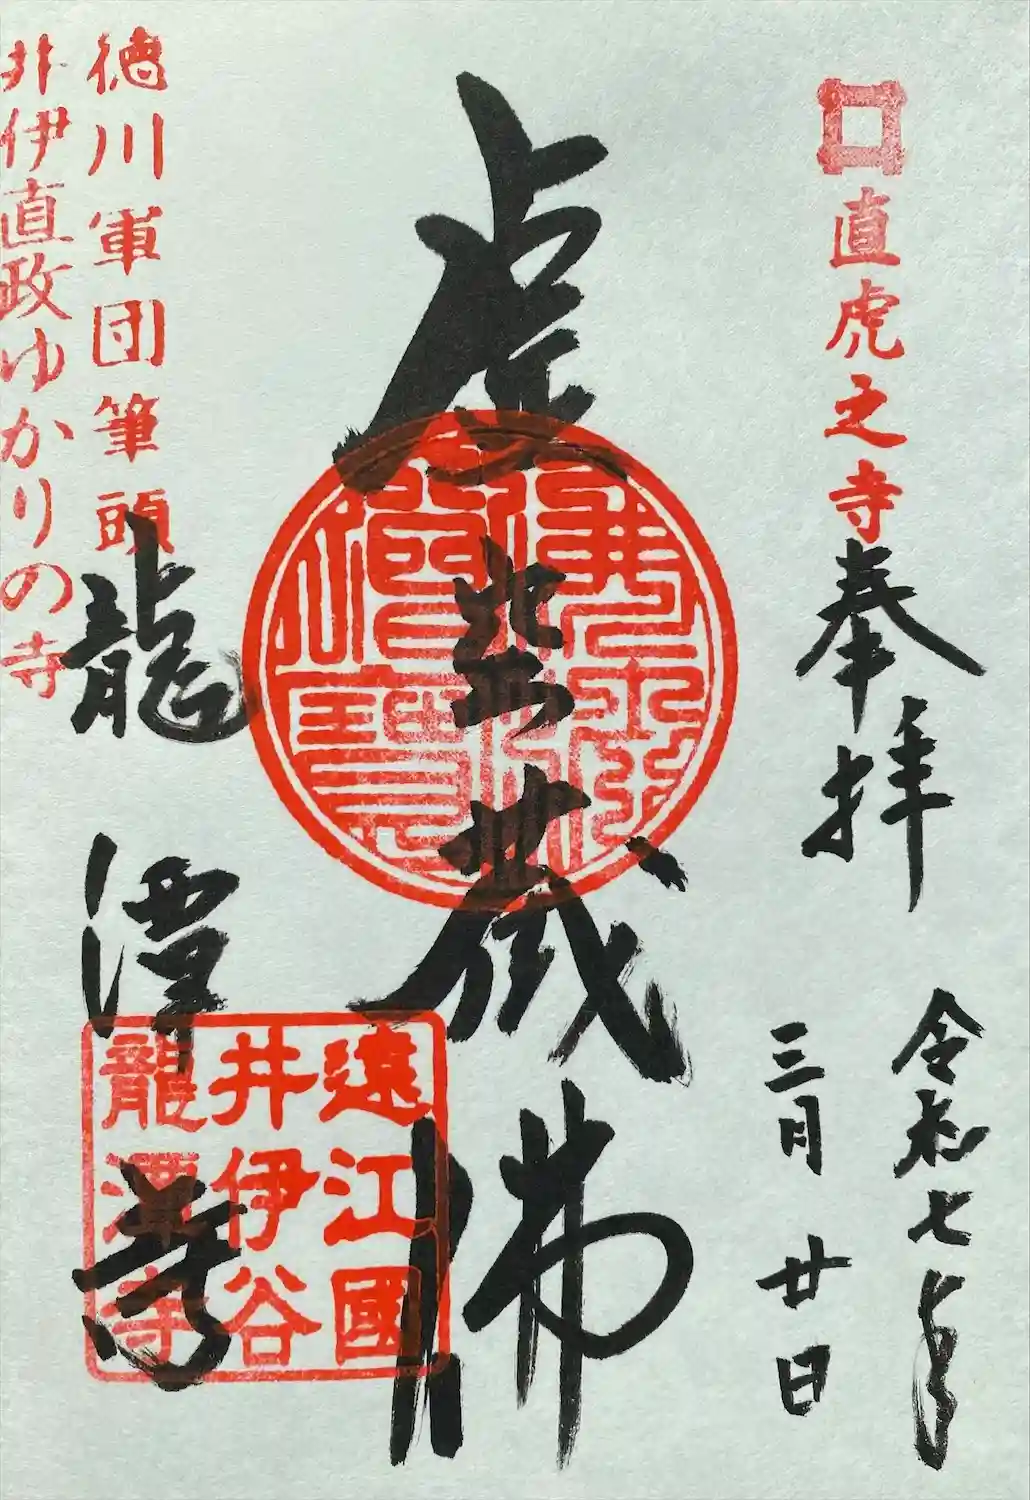 直虎之寺
奉拝
令和七年
三月廿日
虚空蔵佛
佛法僧寳
徳川軍団筆頭
井伊直政ゆかりの寺
龍潭寺
遠江國
井伊谷
龍潭寺